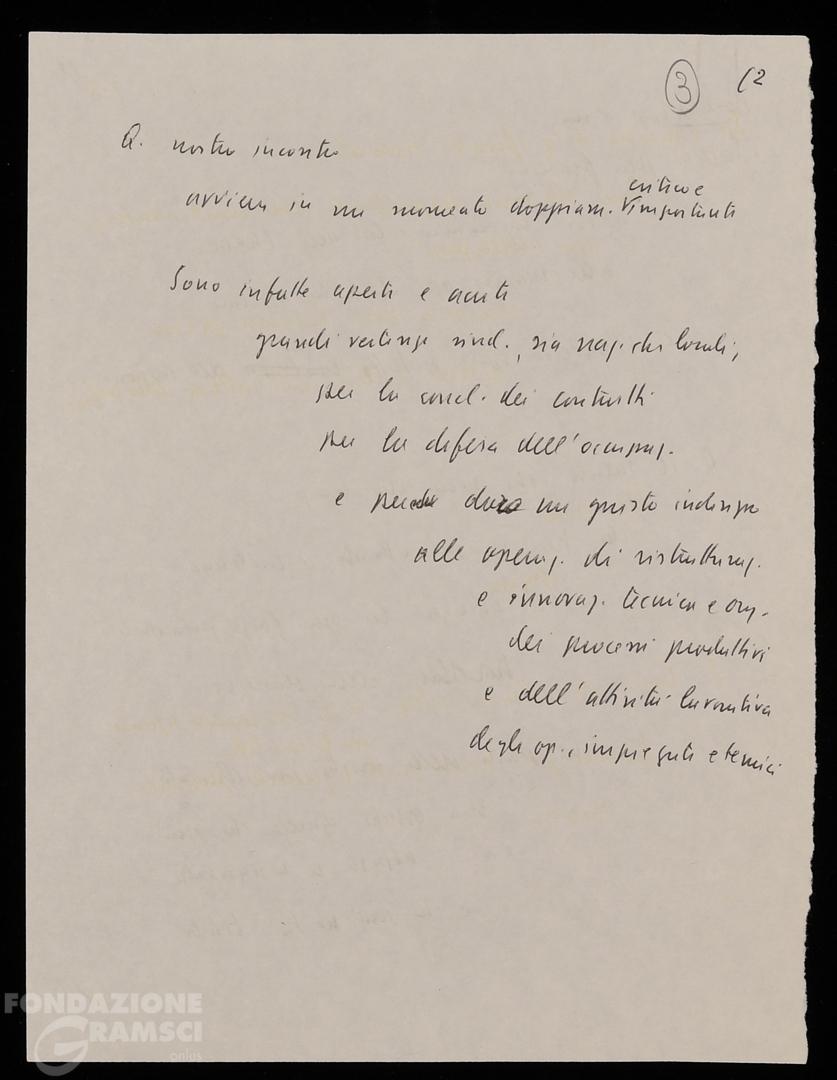 3 (2
Q. nostro incontro
critico e
avviene in un momento doppiam. V importante
Sono infatti aperte e acute
grandi vertenze sind., sia naz. che locali,
per la concl. dei contratti
per la difesa dell'occupaz.
e per dare un giusto indirizzo
alle operaz. di ristrutturaz.
e innovaz. tecnica e org.
dei processi produttivi
e dell'attività lavorativa
degli op., impiegati e tecnici
FONDAZIONE
GRAMSCI
onlus